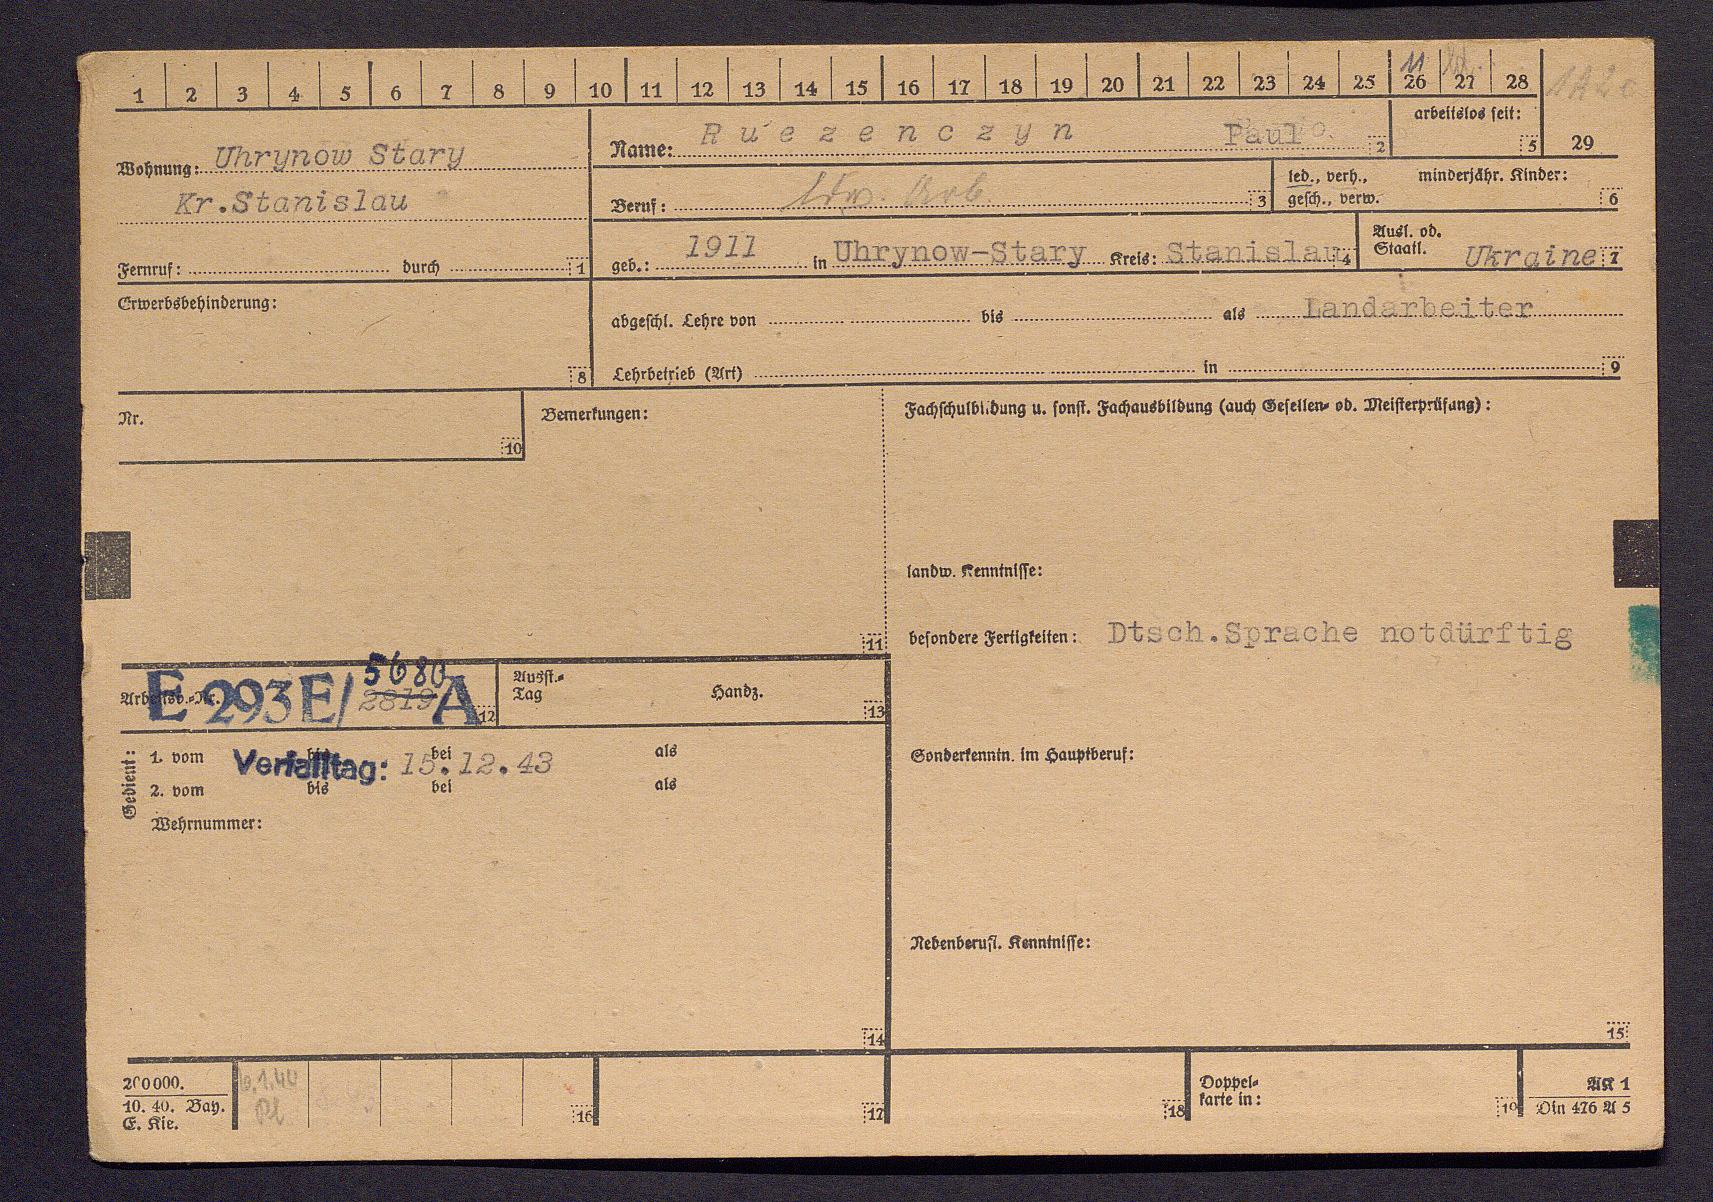 11
1 2 3 4 5 6 7 8 9 10 11 12 13 14 15 16 17 18 19 20 21 22 23 24 25 26 27 28
Wohnung: Uhrynow Stary
Kr.Stanislau
Fernruf: durch 1
Name: R u e z e n c z y n Paul 2
arbeitslos seit: 5
29
Beruf: ldw. Arb. 3
led., verh., minderjähr. Kinder:
gesch., verw. 6
geb.: 1911 in Uhrynow-Stary Kreis: Stanislau 4
Ausl. od.
Staatl. Ukraine 7
Erwerbsbehinderung:
8
abgeschl. Lehre von bis als Landarbeiter
Lehrbetrieb (Art) in 9
Nr.
10
Bemerkungen:
11
Fachschulbildung u. sonst. Fachausbildung (auch Gesellen- od. Meisterprüfung):
landw. Kenntnisse:
besondere Fertigkeiten: Dtsch.Sprache notdürftig
Sonderkenntn. im Hauptberuf:
Nebenberufl. Kenntnisse:
15
5680
Arbeitsb.-Nr. E 293E/ 2819 A 12
Ausst.-
Tag Handz. 13
Gedient:
1. vom bis bei als
Verfalltag: 15.12.43
2. vom bis bei als
Wehrnummer:
14
200000.
10. 40. Bay.
E. Kie.
16
17
18
Doppel-
karte in: 19
AK 1
Din 476 A 5